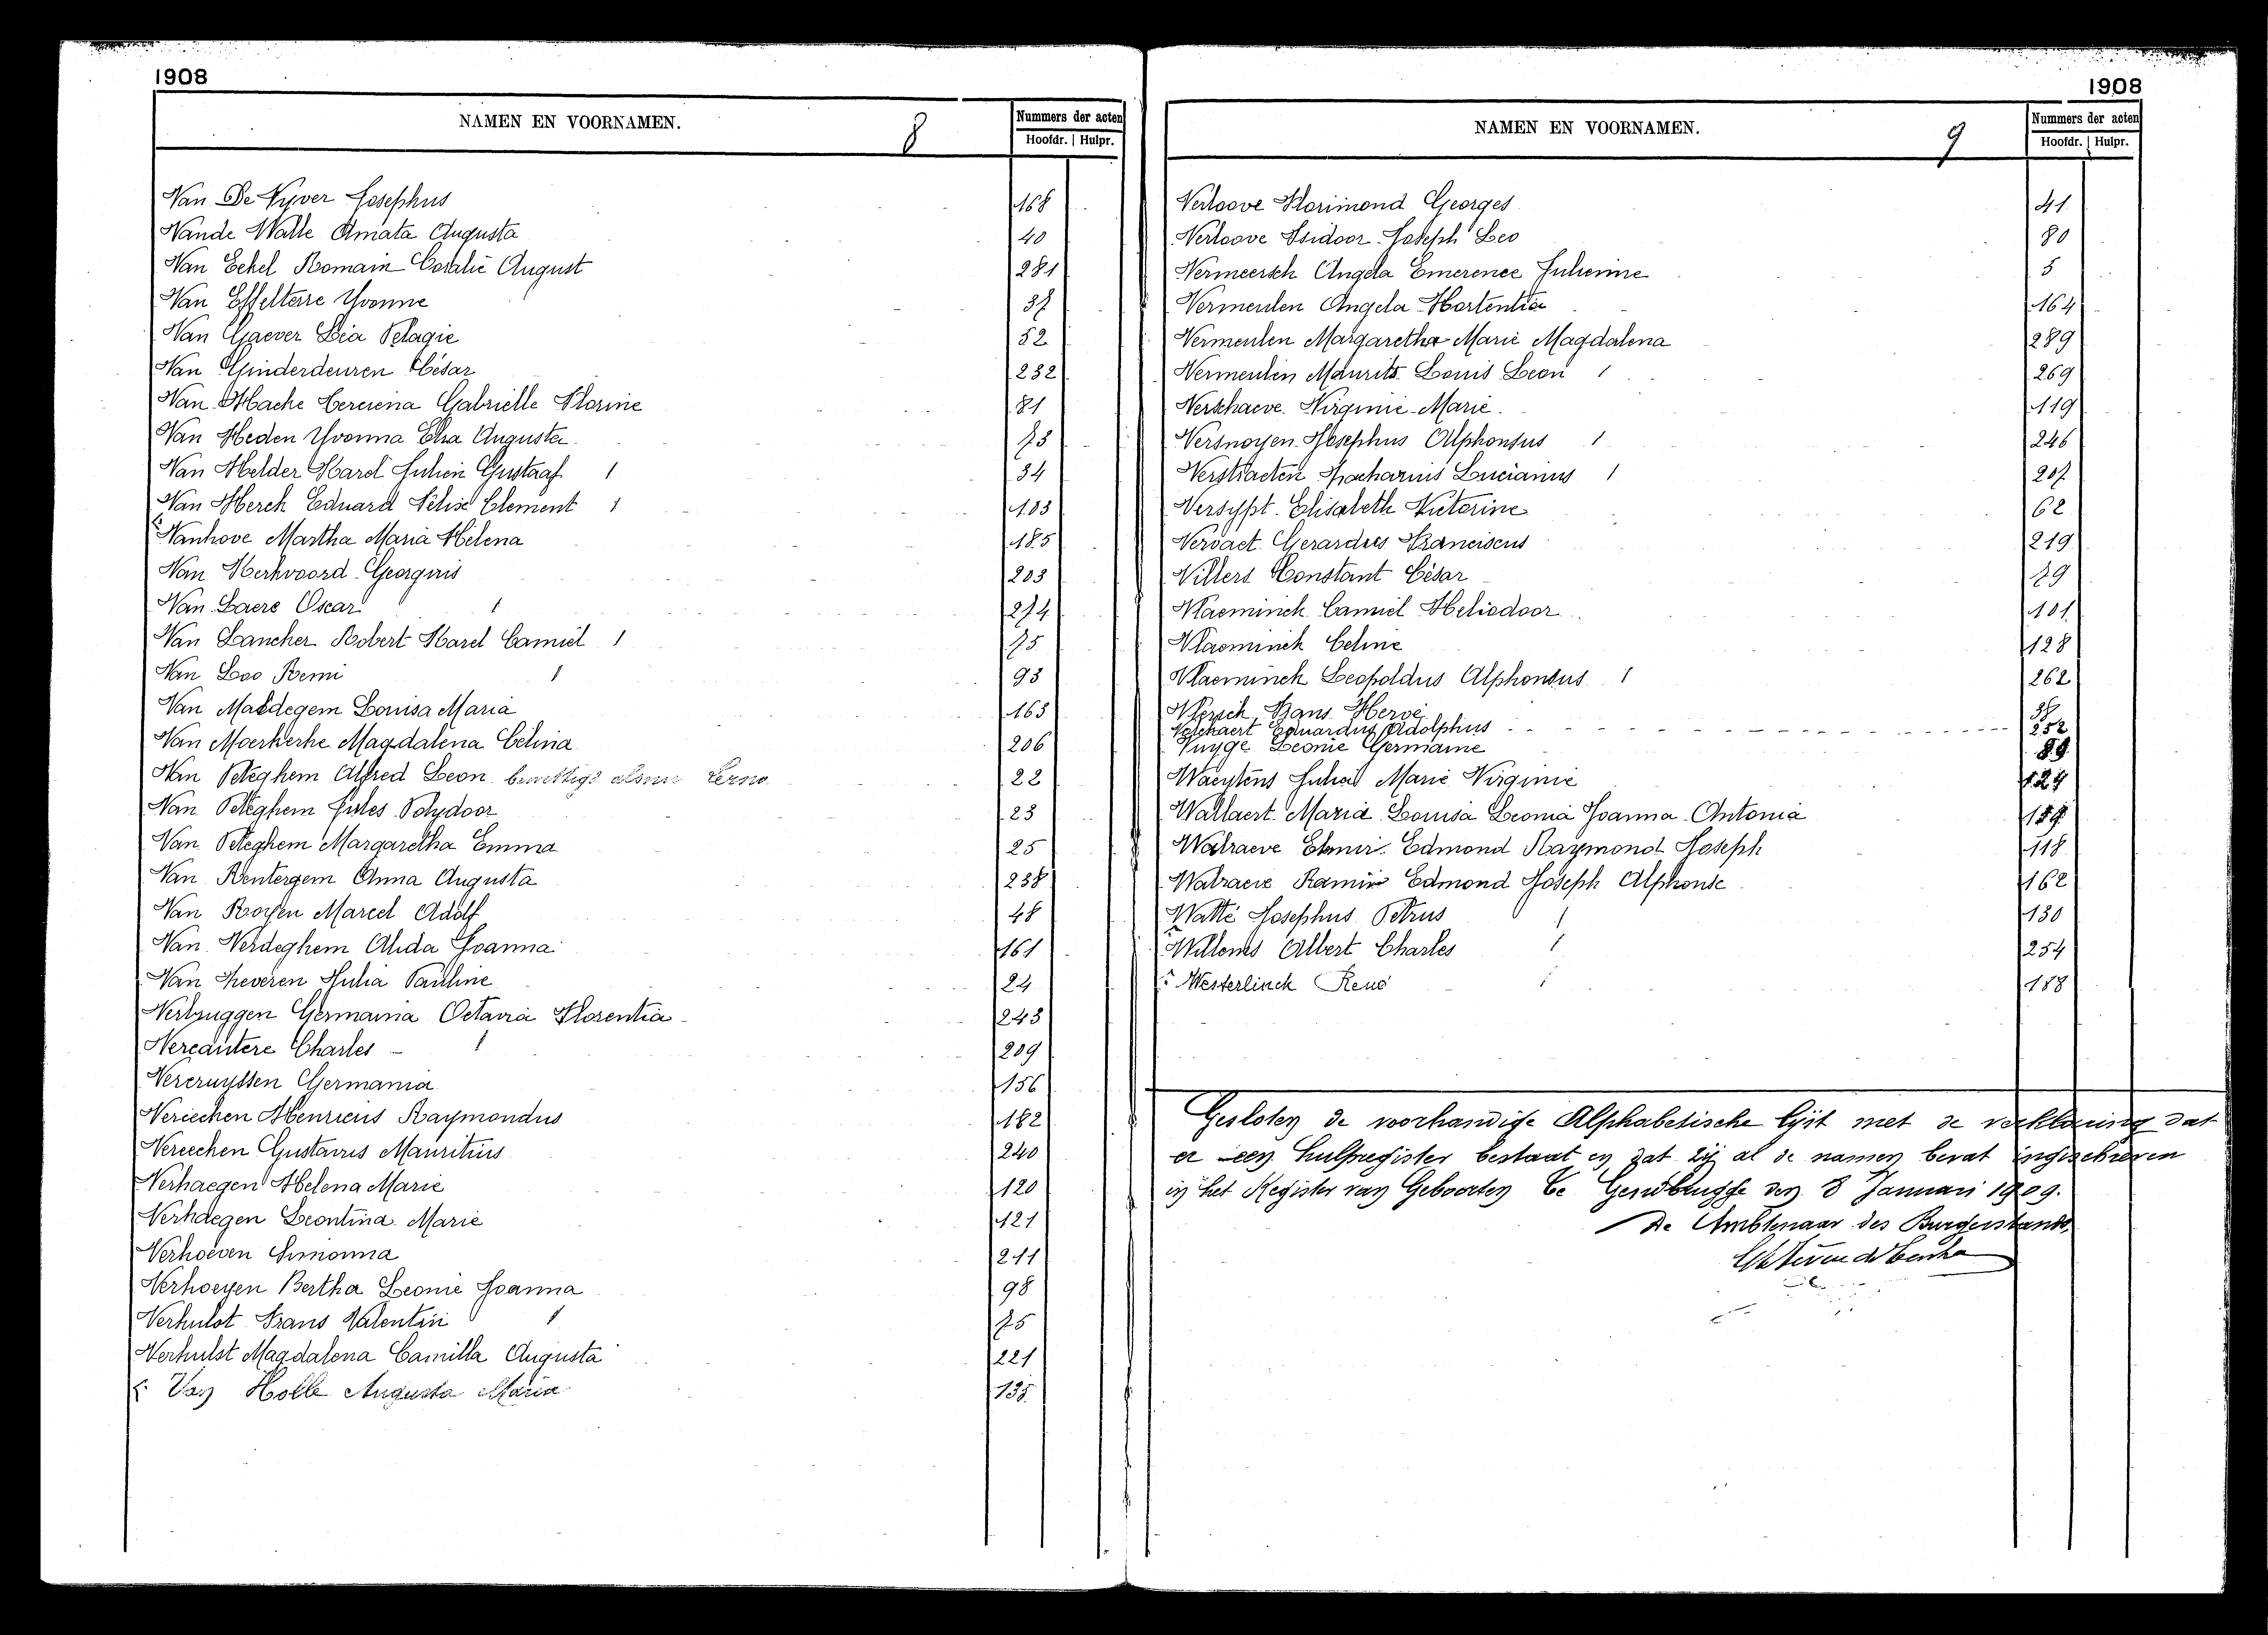 1908
NAMEN EN VOORNAMEN.
8
Nummers der acten
Hoofdr. | Hulpr.
Van De Vyver Josephus 168
Vande Walle Amata Augusta 40
Van Eekel Romain Coralie August 281
Van Effelterre Yvonne 37
Van Gaever Lia Pelagie 52
Van Ginderdeuren César 232
Van Hacke Gabrielle Florine 81
Van Heden Yvonna Elsa Augusta 73
Van Helder Karel Julien Gustaaf 1 34
Van Herck Eduard Félix Clement 1 103
Vanhove Martha Maria Helena 185
Van Kerkvoord Georgius 203
Van Laere Oscar 1 274
Van Lancker Robert Karel Camiel 1 75
Van Loo Remi 1 93
Van Maldegem Louisa Maria 163
Van Moerkerke Magdalena Celina 206
Van Peteghem Alfred Leon 22
Van Peteghem Jules Polydoor 23
Van Peteghem Margaretha Emma 25
Van Rentergem Anna Augusta 238
Van Royen Marcel Adolf 48
Van Verdeghem Alida Joanna 161
Van Zeveren Julia Pauline 24
Verbruggen Germania Octavia Florentia 243
Vercautere Charles 1 209
Vercruyssen Germania 156
Vereecken Henricus Raymondus 182
Vereecken Gustavus Mauritius 240
Verhaegen Helena Marie 120
Verhaegen Leontina Marie 121
Verhoeven Simonna 211
Verhoeyen Bertha Leonie Joanna 98
Verhulst Frans Valentin 1 75
Verhulst Magdalena Camilla Augusta 221
Van Holle Augusta Maria 135
1908
NAMEN EN VOORNAMEN.
9
Nummers der acten
Hoofdr. | Hulpr.
Verloove Florimond Georges 41
Verloove Isidoor Joseph Leo 80
Vermeersch Angela Emerence Julienne 5
Vermeulen Angela Hortentia 164
Vermeulen Margaretha Marie Magdalena 289
Vermeulen Maurits Louis Leon 1 269
Verschaeve Virginie Marie 119
Versnoyen Josephus Alphonsus 1 246
Verstraeten Macharius Lucianus 1 207
Versypt Elisabeth Victorine 62
Vervaet Gerardus Franciscus 219
Villers Constant César 29
Vlaeminck Camiel Heliodoor 101
Vlaeminck Celine 128
Vlaeminck Leopoldus Alphonsus 1 262
Frans Hervé
Volckaert Eduardus Adolphus 252
Vuyge Leonie Germaine 89
Waeytens Julia Marie Virginie 124
Wallaert Maria Louisa Leonia Joanna Antonia 159
Walraeve Elmir Edmond Raymond Joseph 118
Walraeve Ramir Edmond Joseph Alphonse 162
Watté Josephus Petrus 1 130
Willems Albert Charles 1 254
Westerlinck René 1 188
Gesloten de voorhandige Alphabetische lijst met de verklaring dat
er een hulpregister bestaat en dat zij al de namen bevat ingeschreven
in het Register van Geboorten te Gendbrugge den 8 Januari 1909.
De Ambtenaar des Burgerstands,